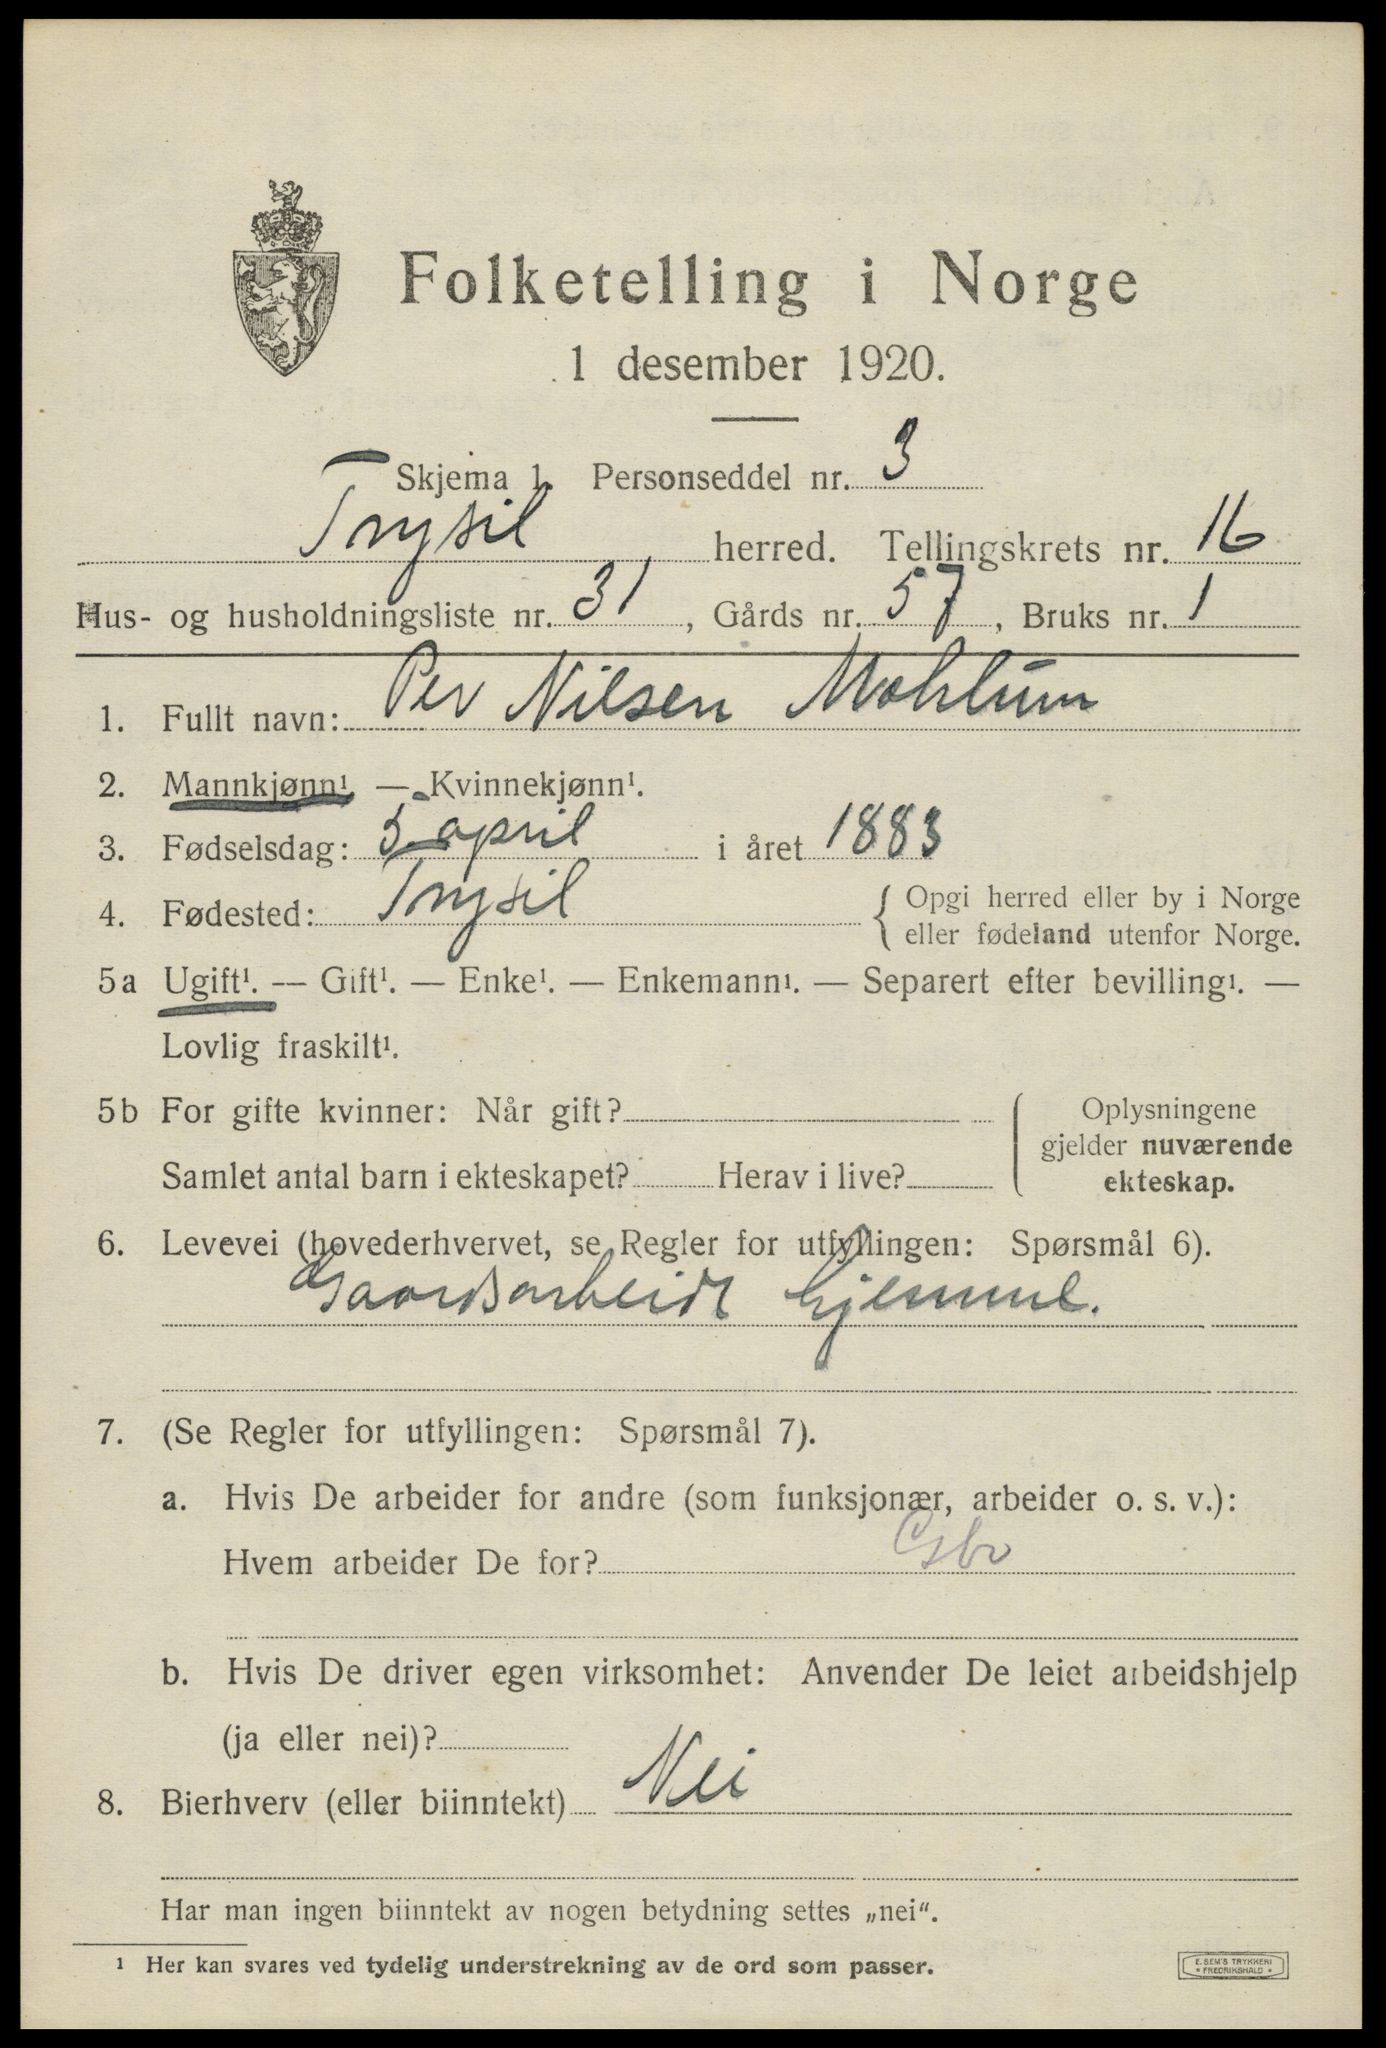 Folketelling i Norge
1 desember 1920.
Skjema 1. Personseddel nr. 3
Trysil herred. Tellingskrets nr. 16
Hus- og husholdningsliste nr. 31, Gårds nr. 57, Bruks nr. 1
1. Fullt navn: Per Nilsen Mohlum
2. Mannkjønn¹ — Kvinnekjønn¹.
3. Fødselsdag: 5. april i året 1883
4. Fødested: Trysil { Opgi herred eller by i Norge
eller fødeland utenfor Norge.
5a Ugift¹. — Gift¹. — Enke¹. — Enkemann¹. — Separert efter bevilling¹. —
Lovlig fraskilt¹.
5b For gifte kvinner: Når gift? { Oplysningene
gjelder nuværende
Samlet antal barn i ekteskapet? Herav i live? ekteskap.
6. Levevei (hovederhvervet, se Regler for utfyllingen: Spørsmål 6).
Gaardsarbeide hjemme.
7. (Se Regler for utfyllingen: Spørsmål 7).
a. Hvis De arbeider for andre (som funksjonær, arbeider o. s. v.):
Hvem arbeider De for? Gbr
b. Hvis De driver egen virksomhet: Anvender De leiet arbeidshjelp
(ja eller nei)?
8. Bierhverv (eller biinntekt) Nei
Har man ingen biinntekt av nogen betydning settes „nei“.
¹ Her kan svares ved tydelig understrekning av de ord som passer.
E. SEM'S TRYKKERI
* FREDRIKSHALD *